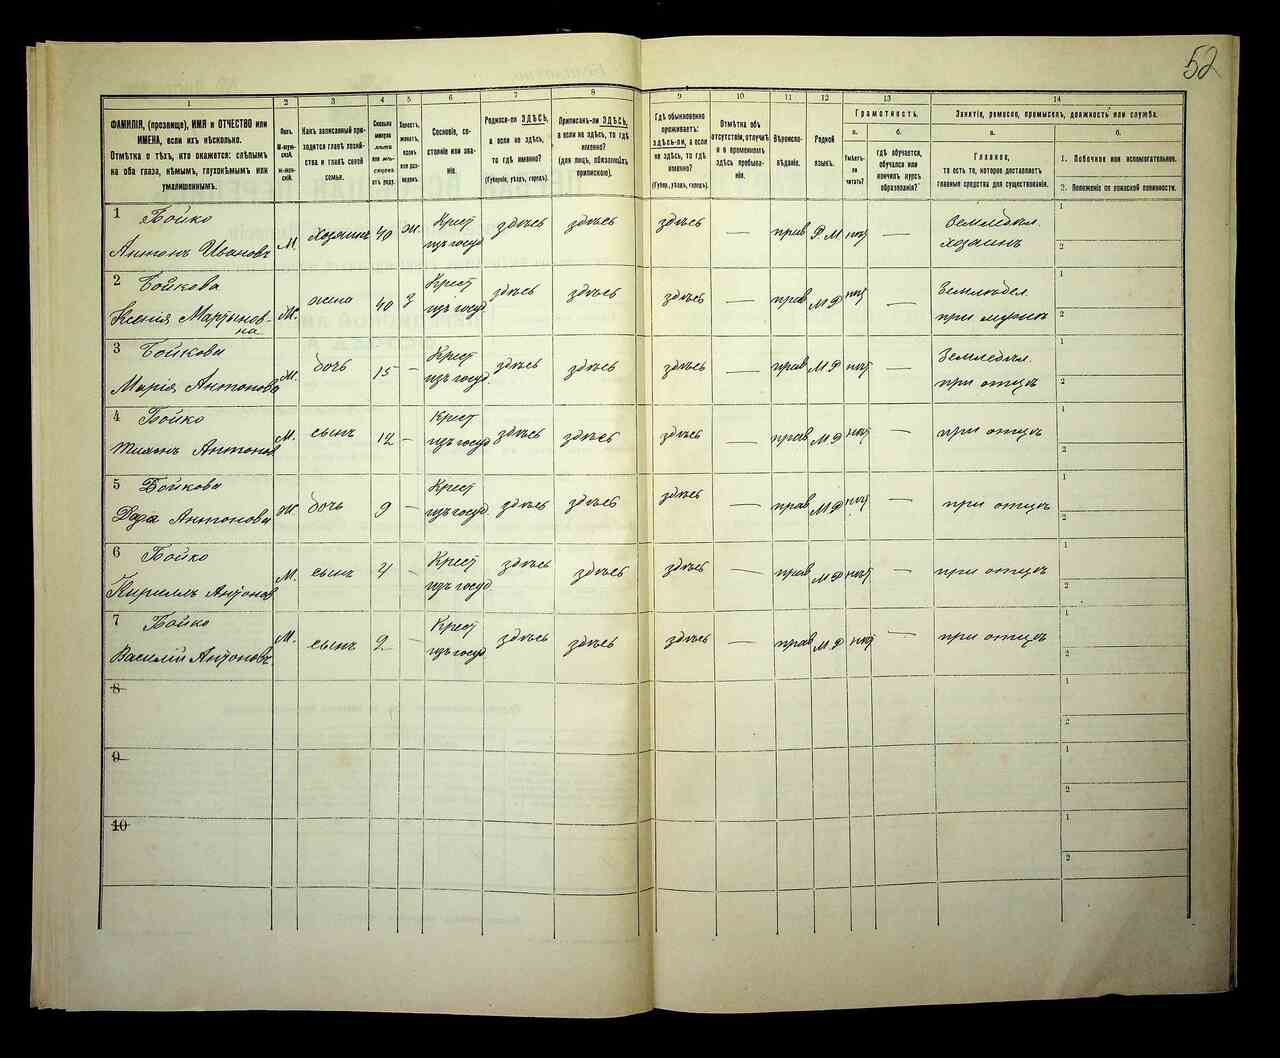 52
1
2
3
4
5
6
7
8
9
10
11
12
13
14
ФАМИЛІЯ, (прозвище), ИМЯ и ОТЧЕСТВО или
ИМЕНА, если ихъ нѣсколько.
Отмѣтка о тѣхъ, кто окажется: слѣпымъ
на оба глаза, нѣмымъ, глухонѣмымъ или
умалишеннымъ.
Полъ.
М-мужской.
Ж-женскій.
Какъ записанный приходится главѣ хозяйства и главѣ своей семьи.
Сколько минуло лѣтъ или мѣсяцевъ отъ роду.
Холостъ, женатъ, вдовъ или разведенъ.
Сословіе, состояніе или званіе.
Родился-ли ЗДѢСЬ,
а если не здѣсь,
то гдѣ именно?
(Губернія, уѣздъ, городъ).
Приписанъ-ли ЗДѢСЬ,
а если не здѣсь, то гдѣ
именно?
(для лицъ, обязанныхъ
припискою).
Гдѣ обыкновенно
проживаетъ:
здѣсь-ли, а если
не здѣсь, то гдѣ
именно?
(Губер., уѣздъ, городъ).
Отмѣтка объ
отсутствіи, отлучкѣ
и о временномъ
здѣсь пребываніи.
Вѣроисповѣданіе.
Родной
языкъ.
Грамотность.
а.
б.
Умѣетъ-ли
читать?
гдѣ обучается,
обучался или
кончилъ курсъ
образованія?
Занятіе, ремесло, промыселъ, должность или служба.
а.
б.
Главное,
то есть то, которое доставляетъ
главныя средства для существованія.
1. Побочное или вспомогательное.
2. Положеніе по воинской повинности.
1 Бойко
Антонъ Ивановъ М. хозяинъ 40 ж. Крест изъ госуд здѣсь здѣсь здѣсь — прав нѣт — Земледѣл. хозяинъ 1 2
2 Бойкова
Ксенія Мартынов-
на Ж. жена 40 з Крест изъ госуд. здѣсь здѣсь здѣсь — прав нѣт — Земледѣл. при мужѣ 1 2
3 Бойкова
Марія Антонова дочь 15 — Крест изъ госуд. здѣсь здѣсь здѣсь — прав нѣт — Земледѣл. при отцѣ 1 2
4 Бойко
Антонов М. сынъ 12 — Крест изъ госуд здѣсь здѣсь здѣсь — прав нѣт — при отцѣ 1 2
5 Бойкова
Антонова Ж. дочь 9 — Крест изъ госуд. здѣсь здѣсь здѣсь — прав нѣт — при отцѣ 1 2
6 Бойко
Кириллъ Антонов М. сынъ 4 — Крест изъ госуд. здѣсь здѣсь здѣсь — прав нѣт — при отцѣ 1 2
7 Бойко
Василій Антоновъ М. сынъ 2 — Крест изъ госуд здѣсь здѣсь здѣсь — прав нѣт — при отцѣ 1 2
8 1 2
9 1 2
10 1 2